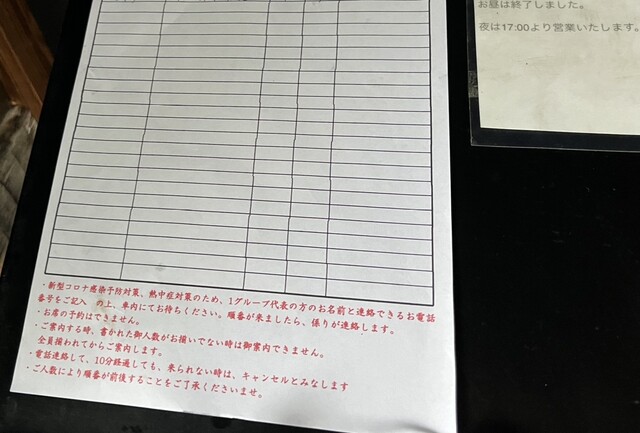 お昼は終了しました。
夜は17:00より営業いたします。
・新型コロナ感染予防対策、熱中症対策のため、1グループ代表の方のお名前と連絡できるお電話
番号をご記入 の上、車内にてお待ちください。順番が来ましたら、係りが連絡します。
・お席の予約はできません。
・ご案内する時、書かれた御人数がお揃いでない時は御案内できません。
全員揃われてからご案内します。
・電話連絡して、10分経過しても、来られない時は、キャンセルとみなします
・ご人数により順番が前後することをご了承くださいませ。